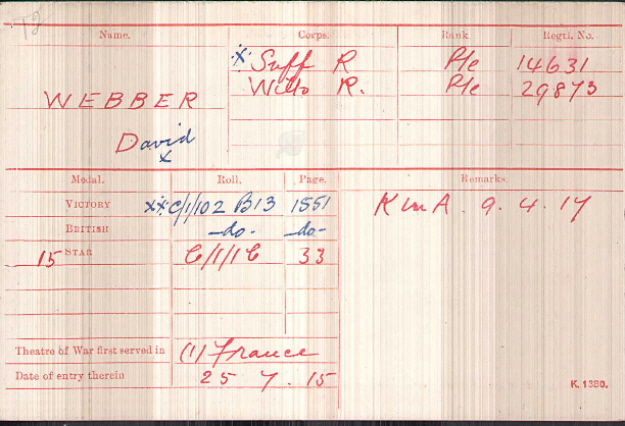 T2
Name. Corps. Rank Regtl. No.
x Suff R Pte 14631
WEBBER Wilts R. Pte 29873
David
x
Medal. Roll. Page. Remarks.
VICTORY xx C/1/102 B13 1551 K in A. 9.4.17
BRITISH -do- -do-
15 STAR C/1/1C 33
Theatre of War first served in (1) France
Date of entry therein 25.7.15
K. 1380.